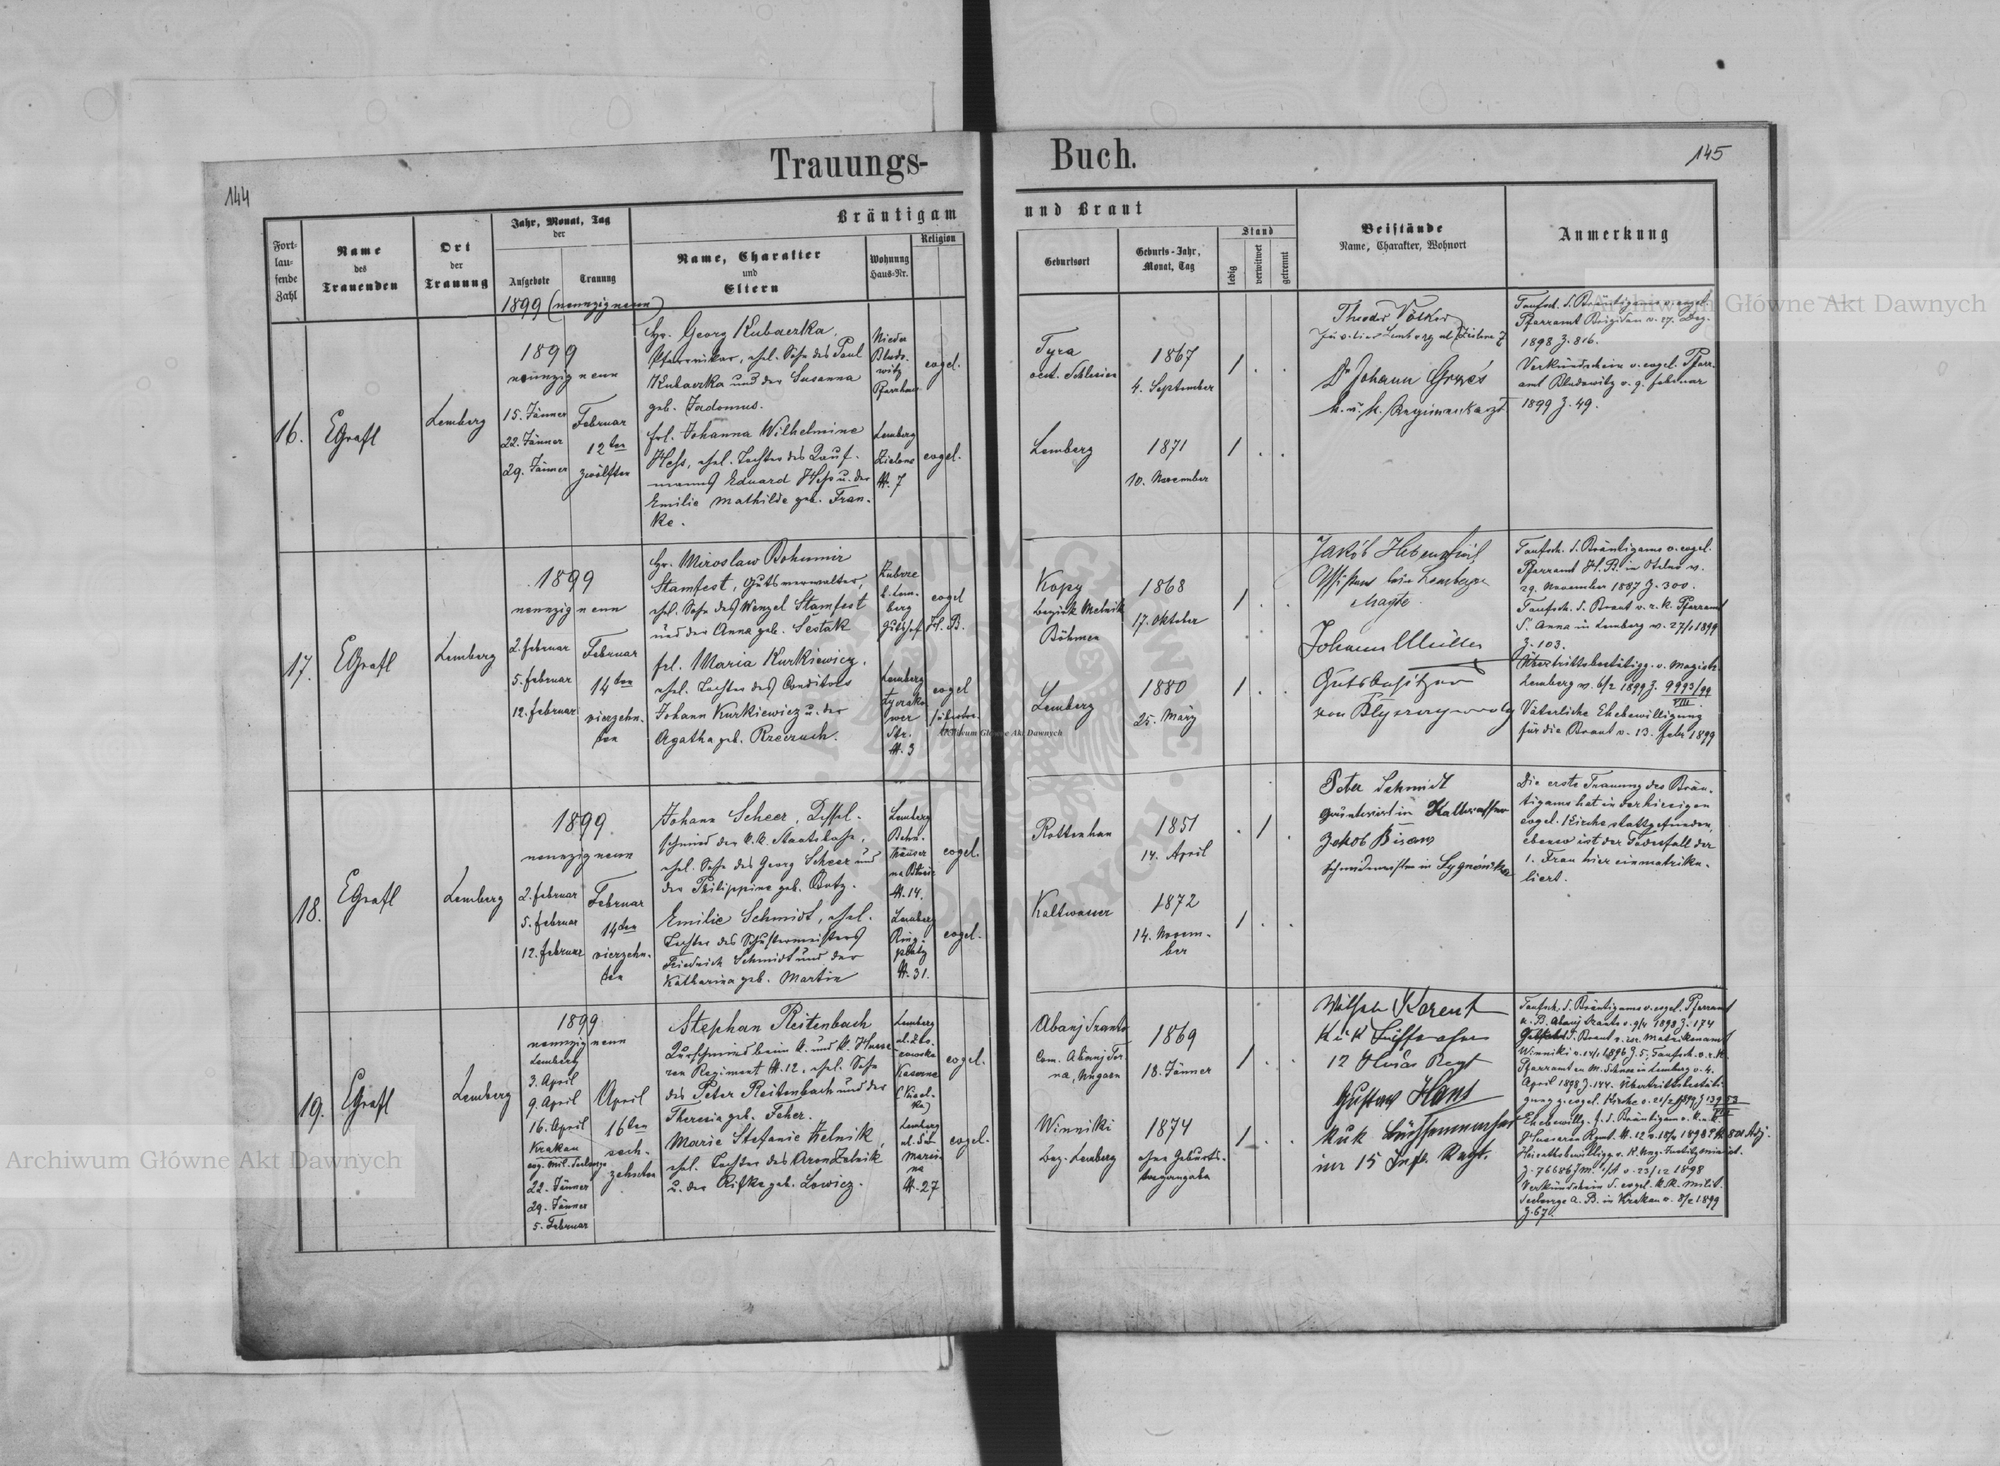 144
Trauungs-
Buch.
145
Fort-
lau-
fende
Zahl
Name
des
Trauenden
Ort
der
Trauung
Jahr, Monat, Tag
der
Aufgebote
Trauung
Bräutigam
und Braut
Name, Charakter
und
Eltern
Wohnung
Haus-Nr.
Religion
Geburtsort
Geburts-Jahr,
Monat, Tag
Stand
ledig
verwitwet
getrennt
Beistände
Name, Charakter, Wohnort
Anmerkung
1899 (neunzig neun)
16.
EGrafl
Lemberg
1899
neunzig neun
15. Jänner
22. Jänner
29. Jänner
Februar
12ten
zwölften
Hr. Georg Kubaczka,
Pfarrvikar, ehel. Sohn des Paul
Kubaczka und der Susanna
geb.
Frl. Johanna Wilhelmine
Hess, ehel. Tochter des Kauf-
manns Eduard Hess u. der
Emilie Mathilde geb. Fran-
ke.
Lemberg
Zielona
N. 7
evgel.
evgel.
Tyra
oest. Schlesien
1867
4. September
Lemberg
1871
10. November
Theodor Völker
Dr Johann
k. u. k. Regimentsarzt
Taufsch. d. Bräutigams v. evgel.
Pfarramt v. 27. Dez.
1898 Z. 816.
Verkündschein v. evgel. Pfarr-
amt Bludowitz v. 9. Februar
1899 Z. 49.
17.
EGrafl
Lemberg
1899
neunzig neun
2. Februar
5. Februar
12. Februar
Februar
14ten
vierzehn-
ten
Hr. Miroslaw Bohumir
Stamfest, Gutsverwalter,
ehel. Sohn des Wenzel Stamfest
und der Anna geb. Sestak
Frl. Maria Kurkiewicz,
ehel. Tochter des Conditors
Johann Kurkiewicz u. der
Agatha geb.
Zubrze
b. Lem-
berg
Gutshof
Lemberg
Str.
N. 3
evgel
H. B.
evgel
Kopy
Bezirk Melnik
Böhmen
1868
17. Oktober
Lemberg
1880
25. März
Jakób
Johann Müller
Gutsbesitzer
von
Taufsch. d. Bräutigams v. evgel.
Pfarramt H. B. in v.
29. November 1887 Z. 300.
Taufsch. d. Braut v. r. k. Pfarramt
S. Anna in Lemberg v. 27/1 1899
Z. 103.
Übertrittsbestätigg. v. Magistr.
Lemberg v. 6/2 1899 Z. 9993/99
VIII.
Väterliche Ehebewilligung
für die Braut v. 13. Febr 1899
18.
EGrafl
Lemberg
1899
neunzig neun
2. Februar
5. Februar
12. Februar
Februar
14ten
vierzehn-
ten
Johann Scheer, Kessel-
schmied der k. k. Staatsbahn,
ehel. Sohn des Georg Scheer und
der Philippine geb.
Emilie Schmidt, ehel.
Tochter des Schustermeisters
Friedrich Schmidt und der
Katharina geb. Martin
Lemberg
Bahn-
häuser
N. 14.
Lemberg
Ring-
platz
N. 31.
evgel.
evgel.
Rottenhan
1851
14. April
Kaltwasser
1872
14. Novem-
ber
Peter Schmidt
Grundwirt in Kaltwasser
Jakob Bisanz
Schmiedmeister in
Die erste Trauung des Bräu-
tigams hat in der hiesigen
evgel. Kirche stattgefunden,
ebenso ist der Todesfall der
1. Frau hier einmatriku-
liert.
19.
EGrafl
Lemberg
1899
neunzig neun
Lemberg
3. April
9. April
16. April
Krakau
evg. Mil. Seelsorge
22. Jänner
29. Jänner
5. Februar
April
16ten
sech-
zehnten
Stephan Reitenbach
Kurschmied beim k. und k. Husa-
ren Regiment N. 12, ehel. Sohn
des Peter Reitenbach und der
Theresia geb. Feher.
Marie Stefanie Zelnik,
ehel. Tochter des Aron Zelnik
u. der Rifke geb. Lowicz.
Lemberg
Kaserne
Lemberg
N. 27
evgel.
evgel.
Abauj Szanto
Com. Abauj Tor-
na, Ungarn
1869
18. Jänner
Winniki
Bez. Lemberg
1874
ohne Geburts-
tagangabe
Wilhelm
K u K
12 Husar Regt
Gustav Hans
K u K Büchsenmacher
im 15 Inft. Regt.
Taufsch. d. Bräutigams v. evgel. Pfarramt
A. B. Abauj Szanto v. 9/4 1898 Z. 174
Gebsch. d. Braut v. isr. Matrikenamt
Winniki v. 1896 Z. 5, Taufsch. v. r. k.
Pfarramt in Lemberg v. 4.
April 1898 Z. 144. Übertrittsbestäti-
gung
Verkündschein d. evgel. k. k. Milit.
Seelsorge A. B. in Krakau v. 8/2 1899
Z. 67.
Archiwum Główne Akt Dawnych
Archiwum Główne Akt Dawnych
Archiwum Główne Akt Dawnych